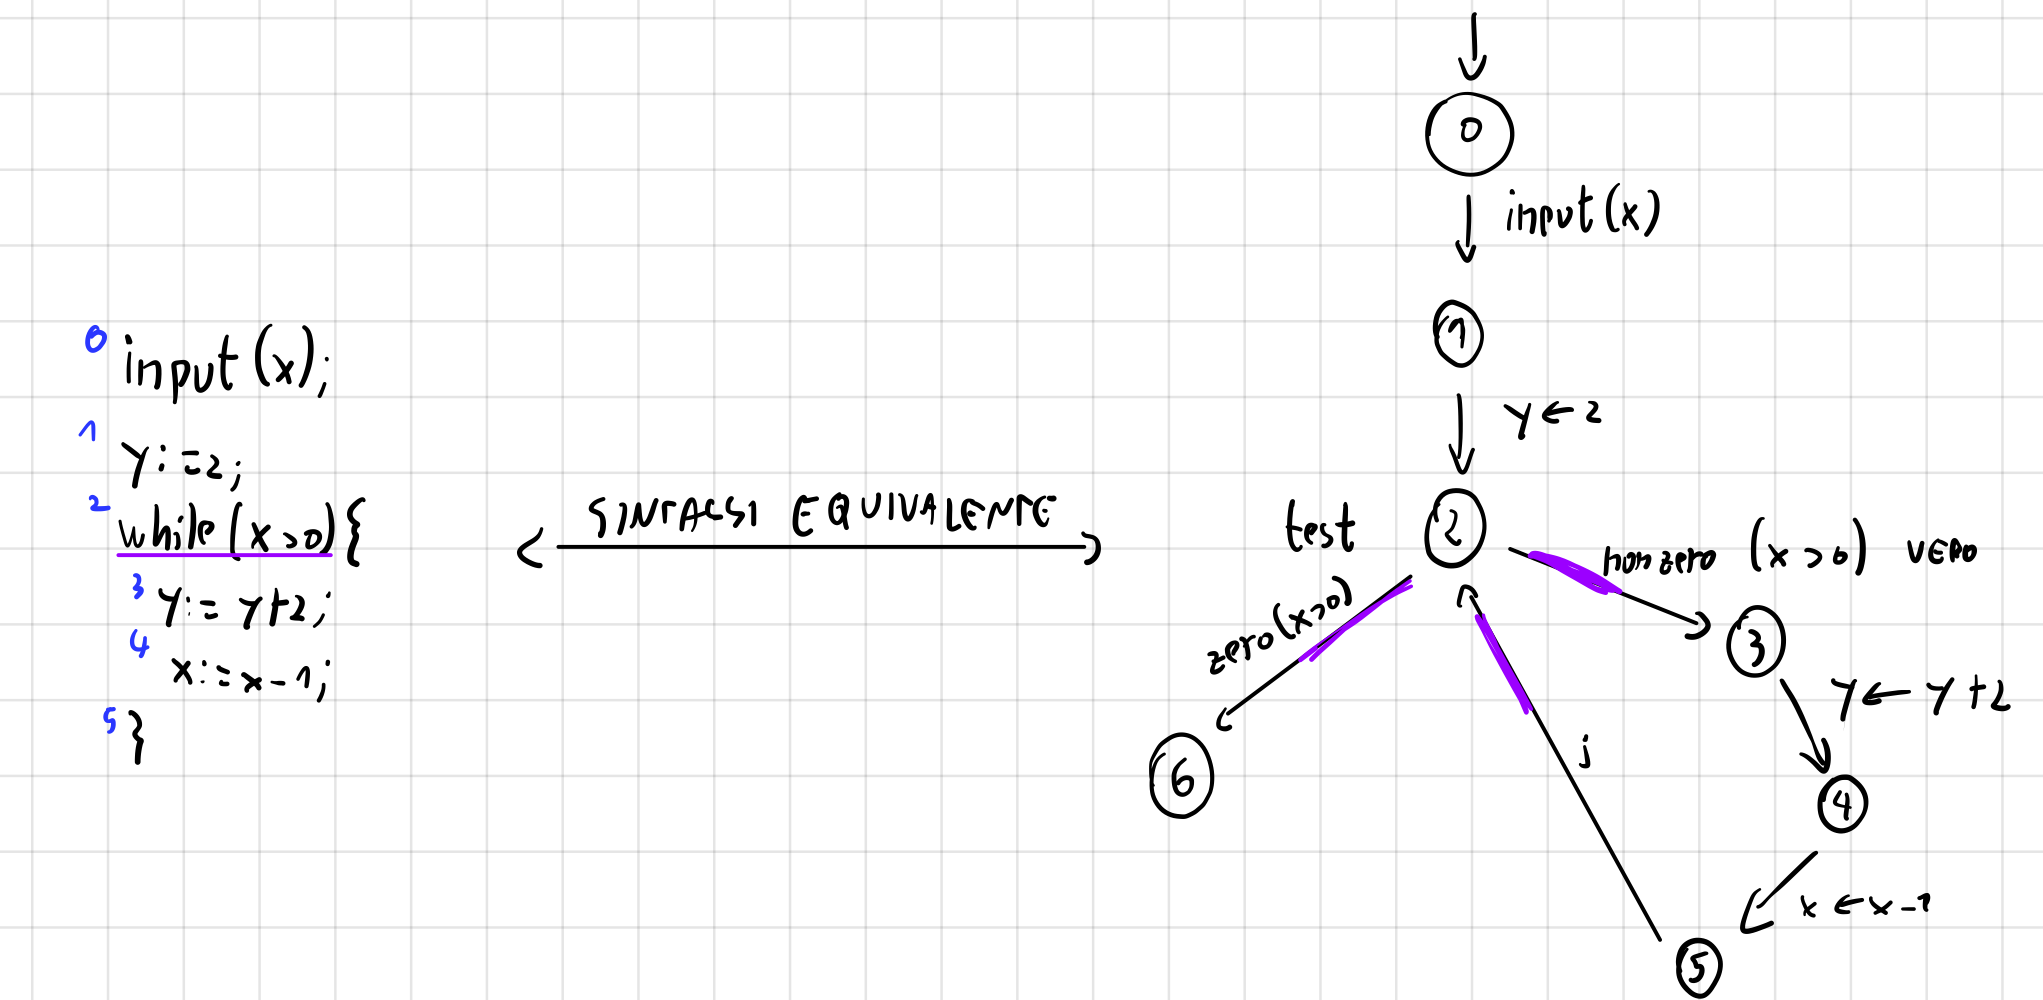 0 input(x);
1 y:=2;
2 while(x>0){
3 y:=y+2;
4 x:=x-1;
5 }
SINTASSI EQUIVALENTE
0
input(x)
1
y←2
test
2
nonzero (x>0) VERO
zero(x>0)
3
y←y+2
6
j
4
x←x-1
5